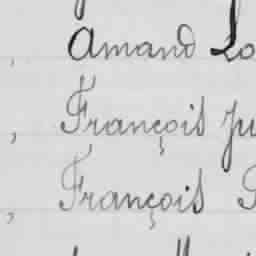 Amand Lo
, François ju
, François